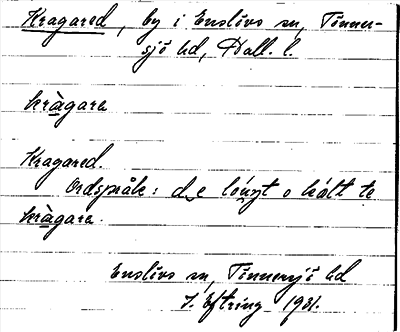 Kragared, by i Enslövs sn, Tönner-
sjö hd, Hall. l.
kràgara
Kragared.
Ordspråk: de lóngt o hålt te
kràgara.
Enslövs sn, Tönnersjö hd
J. Eftring 1931.